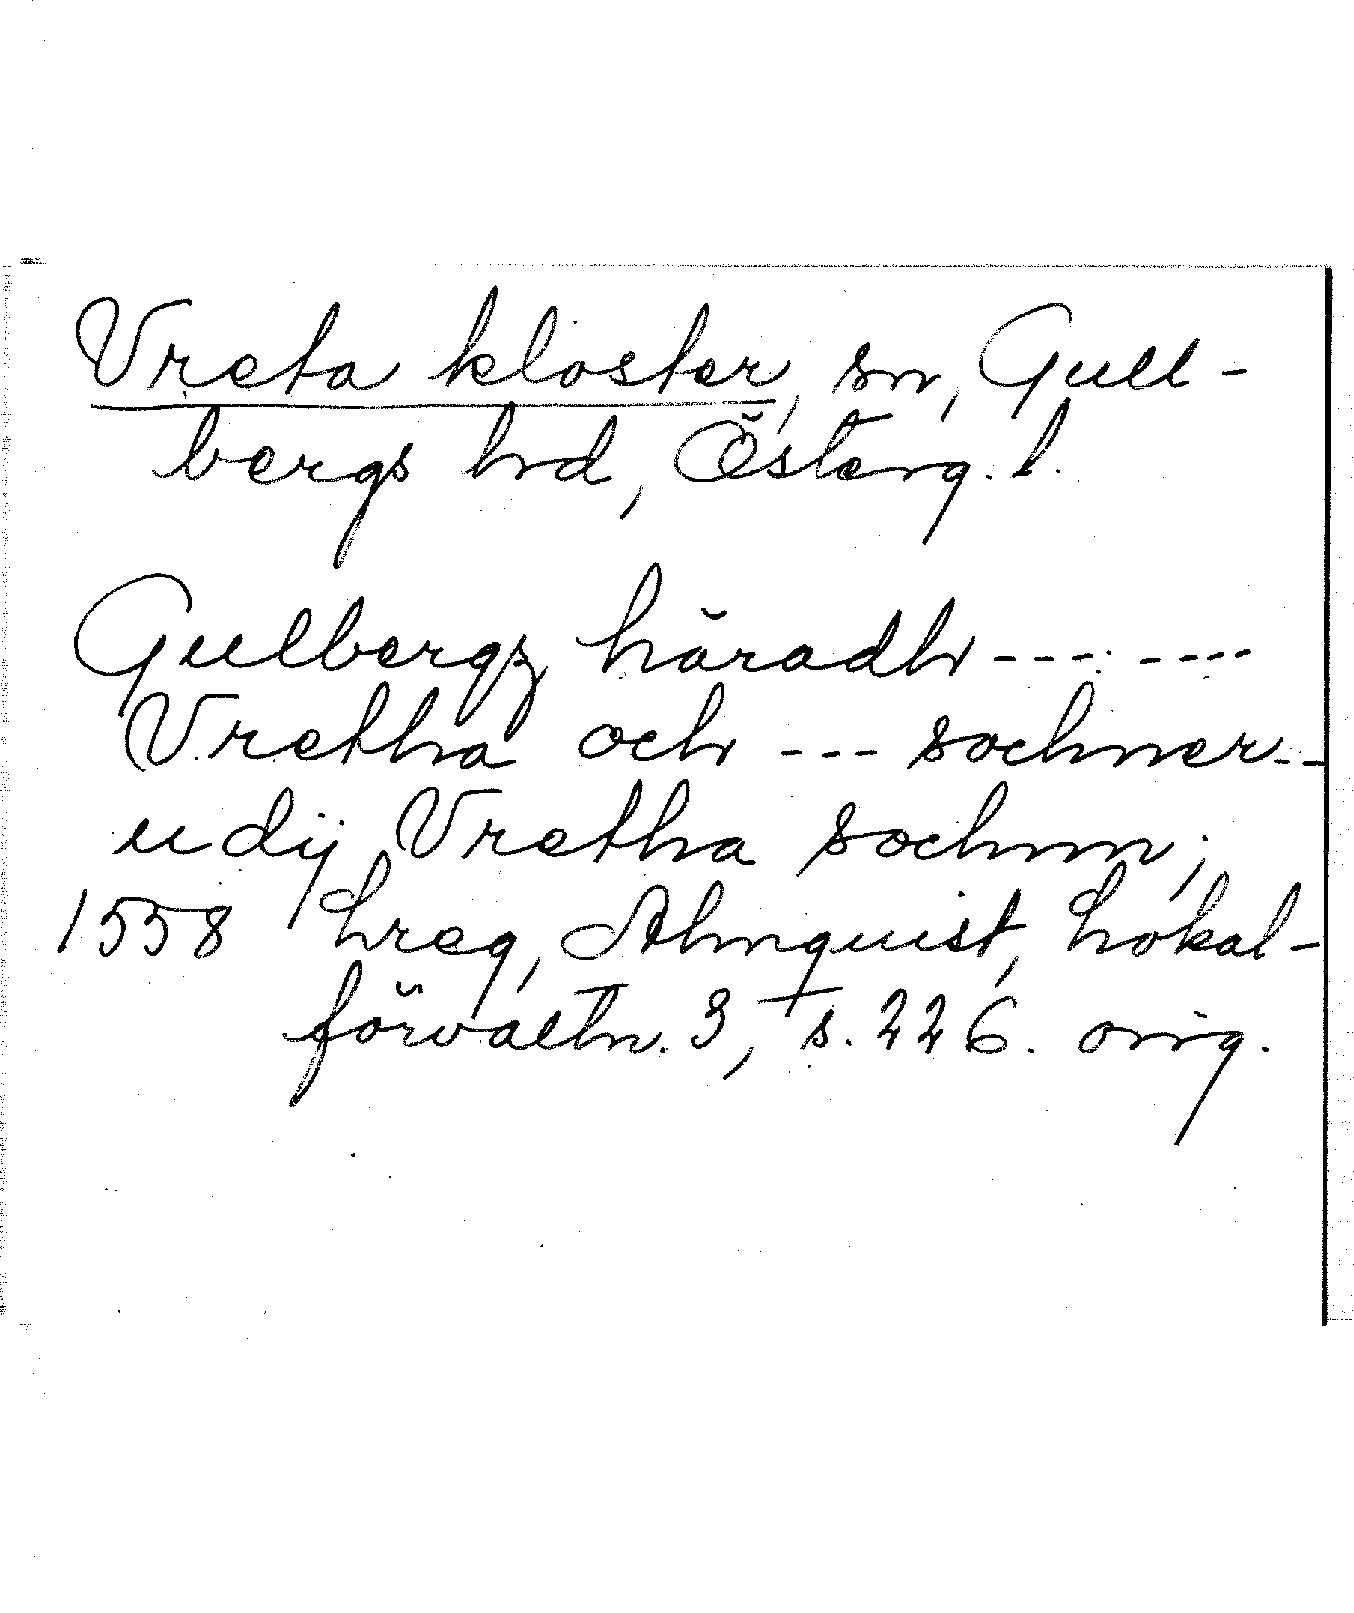 Vreta kloster, sn, Gull-
bergs hd, Österg. l.
Gulbergz häradh --- ---
Vretha och --- sochner--
u dij Vretha sochnn;
1558 Lreg, Almquist, Lokal-
förvaltn. 3, s. 226. orig.